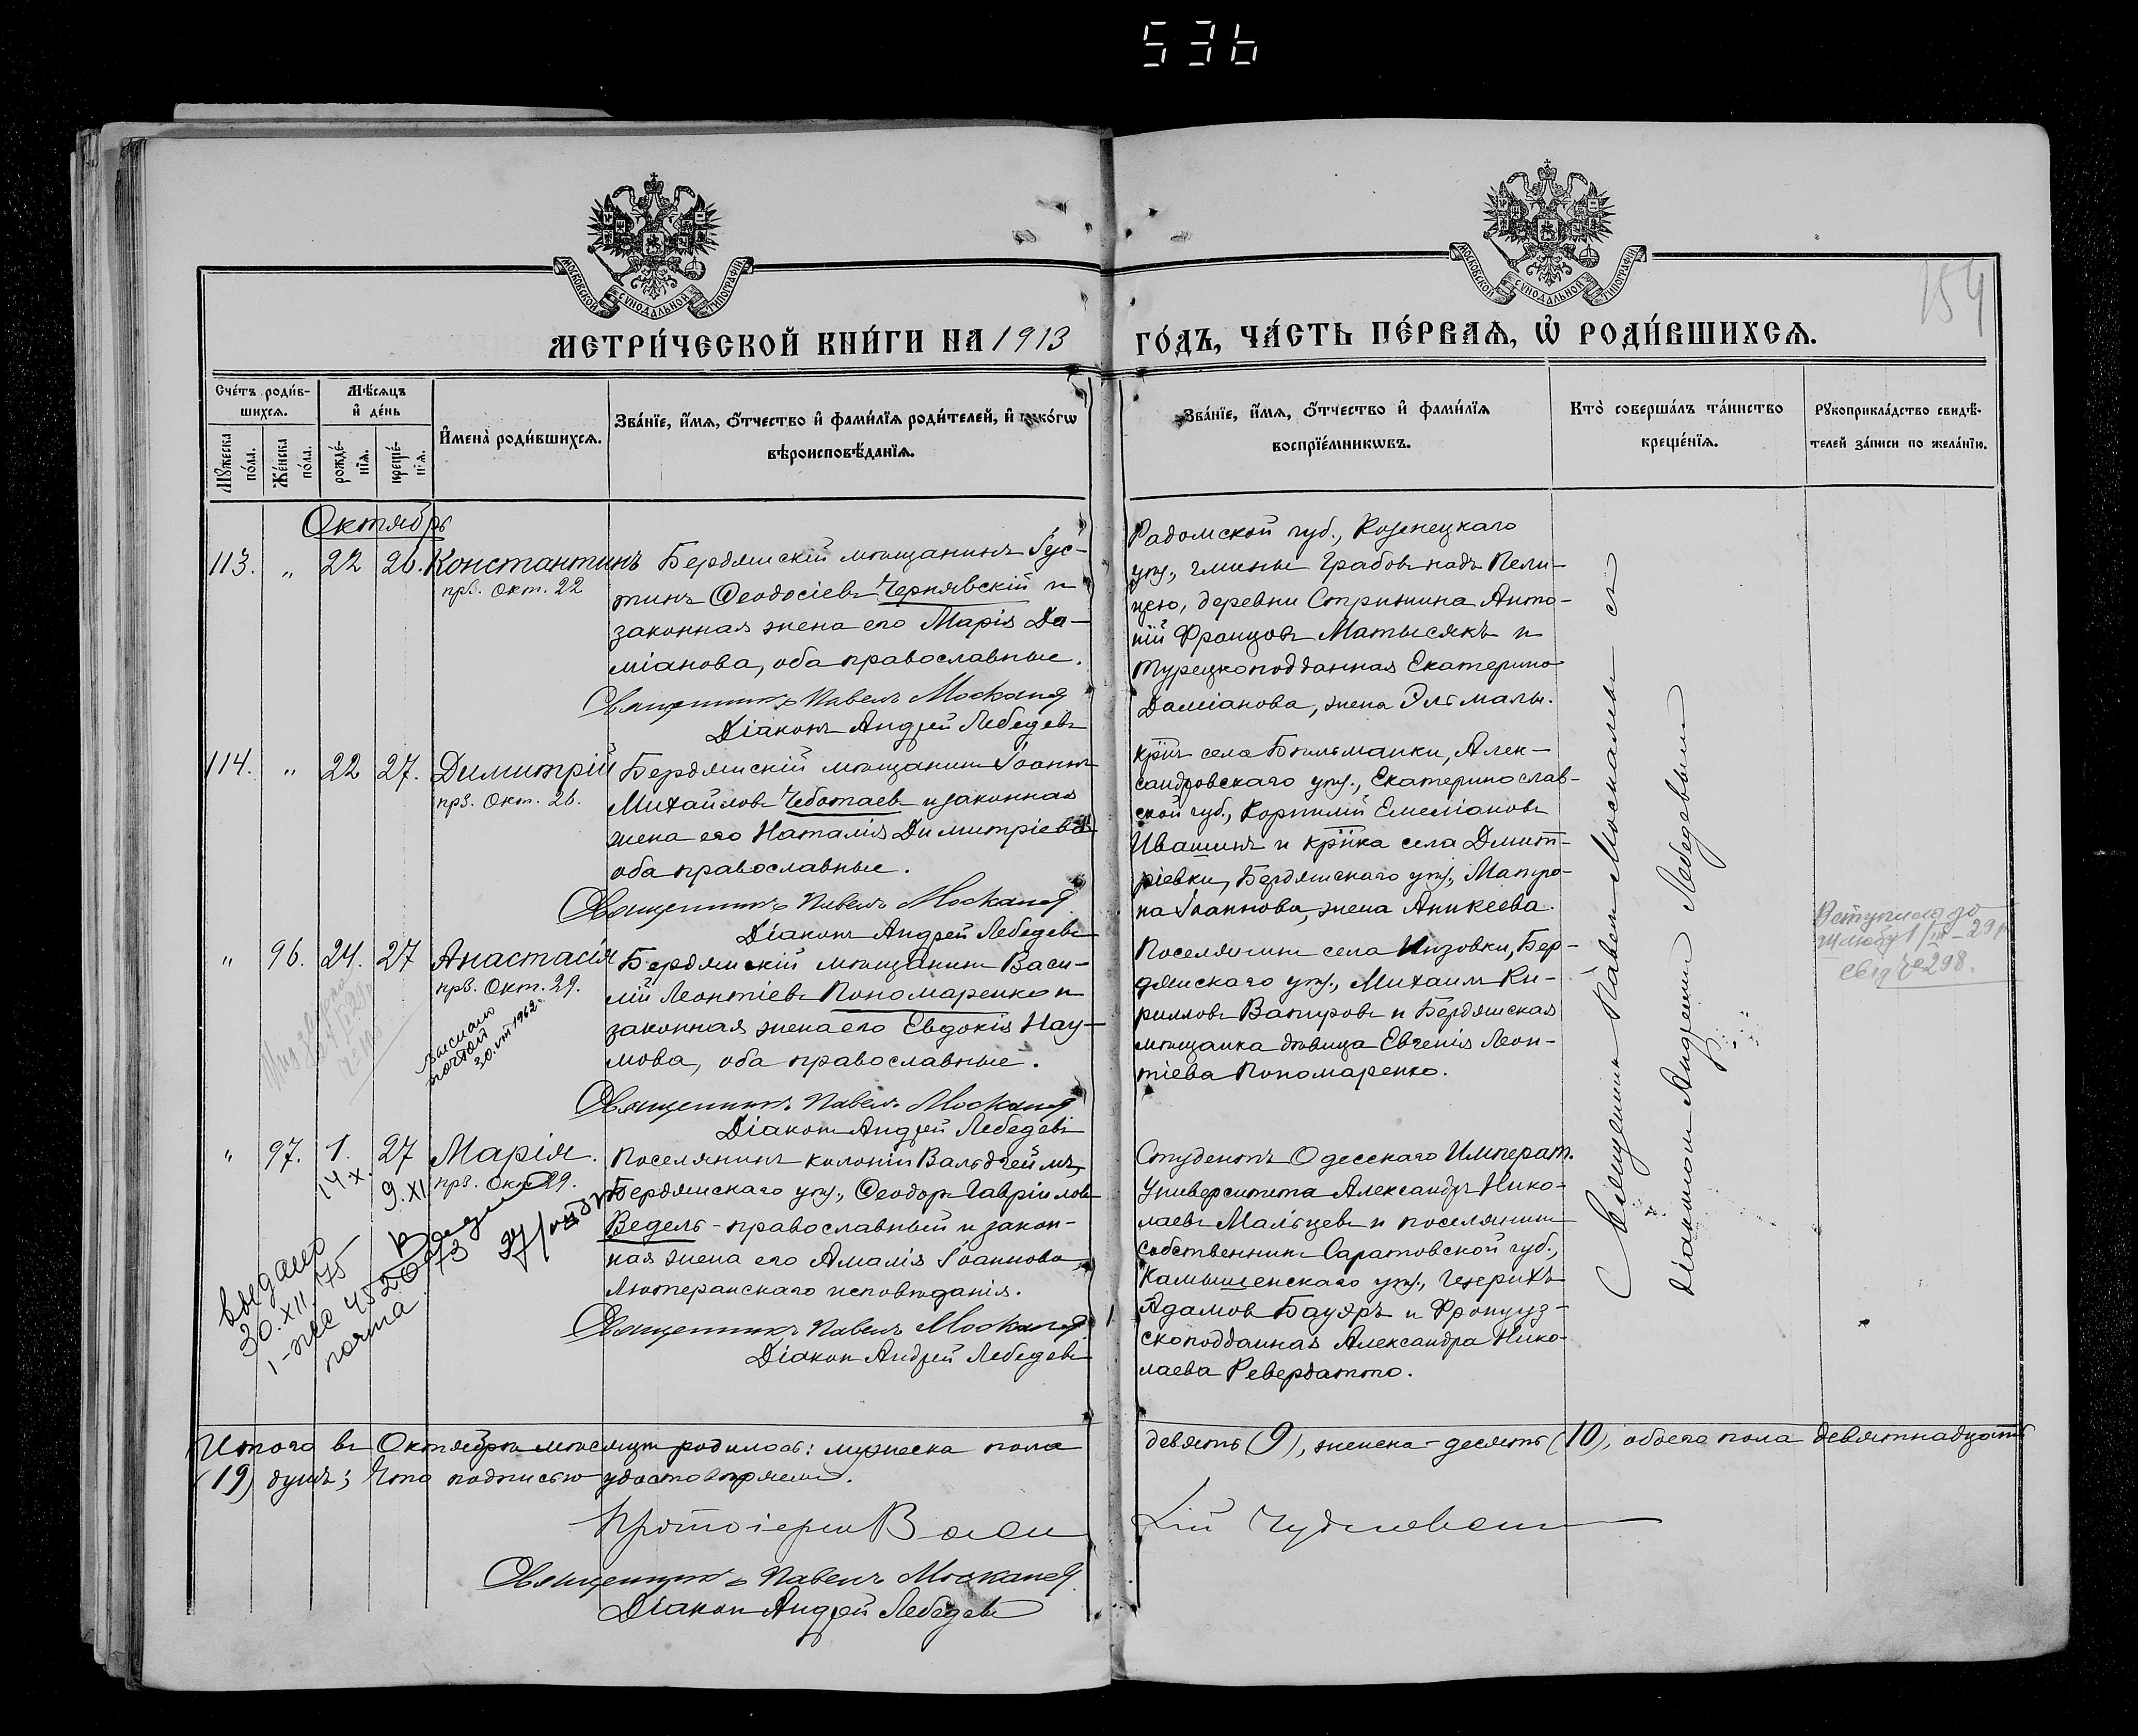 536
МОСКОВСКОЙ СУНОДАЛЬНОЙ ТИПОГРАФІИ
МОСКОВСКОЙ СУНОДАЛЬНОЙ ТИПОГРАФІИ
154
МЕТРИ́ЧЕСКОЙ КНИ́ГИ НА 1913
ГО́ДЪ, ЧА́СТЬ ПЕ́РВАѦ, Ѡ҆ РОДИ́ВШИХСѦ.
Сче́тъ роди́в-
шихсѧ.
Мꙋ́жеска по́ла.
Же́нска по́ла.
Мѣ́сѧцъ
и҆ де́нь
рожде́-
нїѧ.
креще́-
нїѧ.
И҆мена̀ роди́вшихсѧ.
Зва́нїе, и҆́мѧ, ѻ҆́тчество и҆ фами́лїѧ роди́телей, и҆ како́гѡ
вѣроисповѣ́данїѧ.
Зва́нїе, и҆́мѧ, ѻ҆́тчество и҆ фами́лїѧ
воспрїе́мникѡвъ.
Кто̀ соверша́лъ та́инство
креще́нїѧ.
Рꙋкоприкла́дство свидѣ́-
телей за́писи по жела́нїю.
Октябрь
113. " 22 26. Константинъ
прз. Окт. 22
Бердянскій мѣщанинъ Іус-
тинъ Ѳеодосіевъ Чернявскій и
законная жена его Марія Да-
міанова, оба православные.
Священникъ Павелъ Москалев
Діаконъ Андрей Лебедевъ
Радомской губ., Козенецкаго
уѣз., гмины Грабовъ надъ Пели-
цею, деревни Стрижина Анто-
ній Францовъ Матысякъ и
турецкоподданная Екатерина
Даміанова, жена Эльмалы.
114. " 22 27. Димитрій
прз. Окт. 26.
Бердянскій мѣщанинъ Іоаннъ
Михайловъ Чеботаевъ и законная
жена его Наталія Димитріева
оба православные.
Священникъ Павелъ Москалев
Діаконъ Андрей Лебедевъ
крⷭ҇нъ села Бѣльманки, Алек-
сандровскаго уѣз., Екатеринослав-
ской губ., Корнилій Емеліановъ
Ивашинъ и крⷭ҇нка села Дмит-
ріевки, Бердянскаго уѣз., Матро-
на Іоаннова, жена Аникеева.
" 96. 24. 27 Анастасія
прз. Окт. 29.
выслано
почтой
30.VIII 1962
Бердянскій мѣщанинъ Васи-
лій Леонтіевъ Пономаренко и
законная жена его Евдокія Нау-
мова, оба православные.
Священникъ Павелъ Москалев
Діаконъ Андрей Лебедевъ
Поселянинъ села Инзовки, Бер-
дянскаго уѣз., Михаилъ Ки-
рилловъ Вапировъ и Бердянская
мѣщанка дѣвица Евгенія Леон-
тіева Пономаренко.
Вступила до
шлюбу 1/III-29 р
свід № 298.
" 97. 1. 27 Марія.
14 X. 9. XI прз. Окт. 29.
выдано
30. XII. 75
1-ЖС 452073
почта
Поселянинъ колоніи Вальдгеймъ,
Бердянскаго уѣз., Ѳеодоръ Гавріиловъ
Ведель - православный и закон-
ная жена его Амалія Іоаннова,
Лютеранскаго исповѣданія.
Священникъ Павелъ Москалев
Діаконъ Андрей Лебедевъ
Студентъ Одесскаго Императ.
Университета Александръ Нико-
лаевъ Мальцевъ и поселянинъ
собственникъ Саратовской губ.,
Камышенскаго уѣз., Генрихъ
Адамовъ Бауэръ и Француз-
скоподданная Александра Нико-
лаева Ревердатто.
Священникъ Павелъ Москалевъ съ
діакономъ Андреемъ Лебедевымъ
Итого въ Октябрѣ мѣсяцѣ родилось: мужеска пола девять (9), женска - десять (10), обоего пола девятнадцать
(19) душъ; Что подписью удостовѣряемъ.
Протоіерей Васи лій Чудновскій
Священникъ Павелъ Москалев
Діаконъ Андрей Лебедевъ